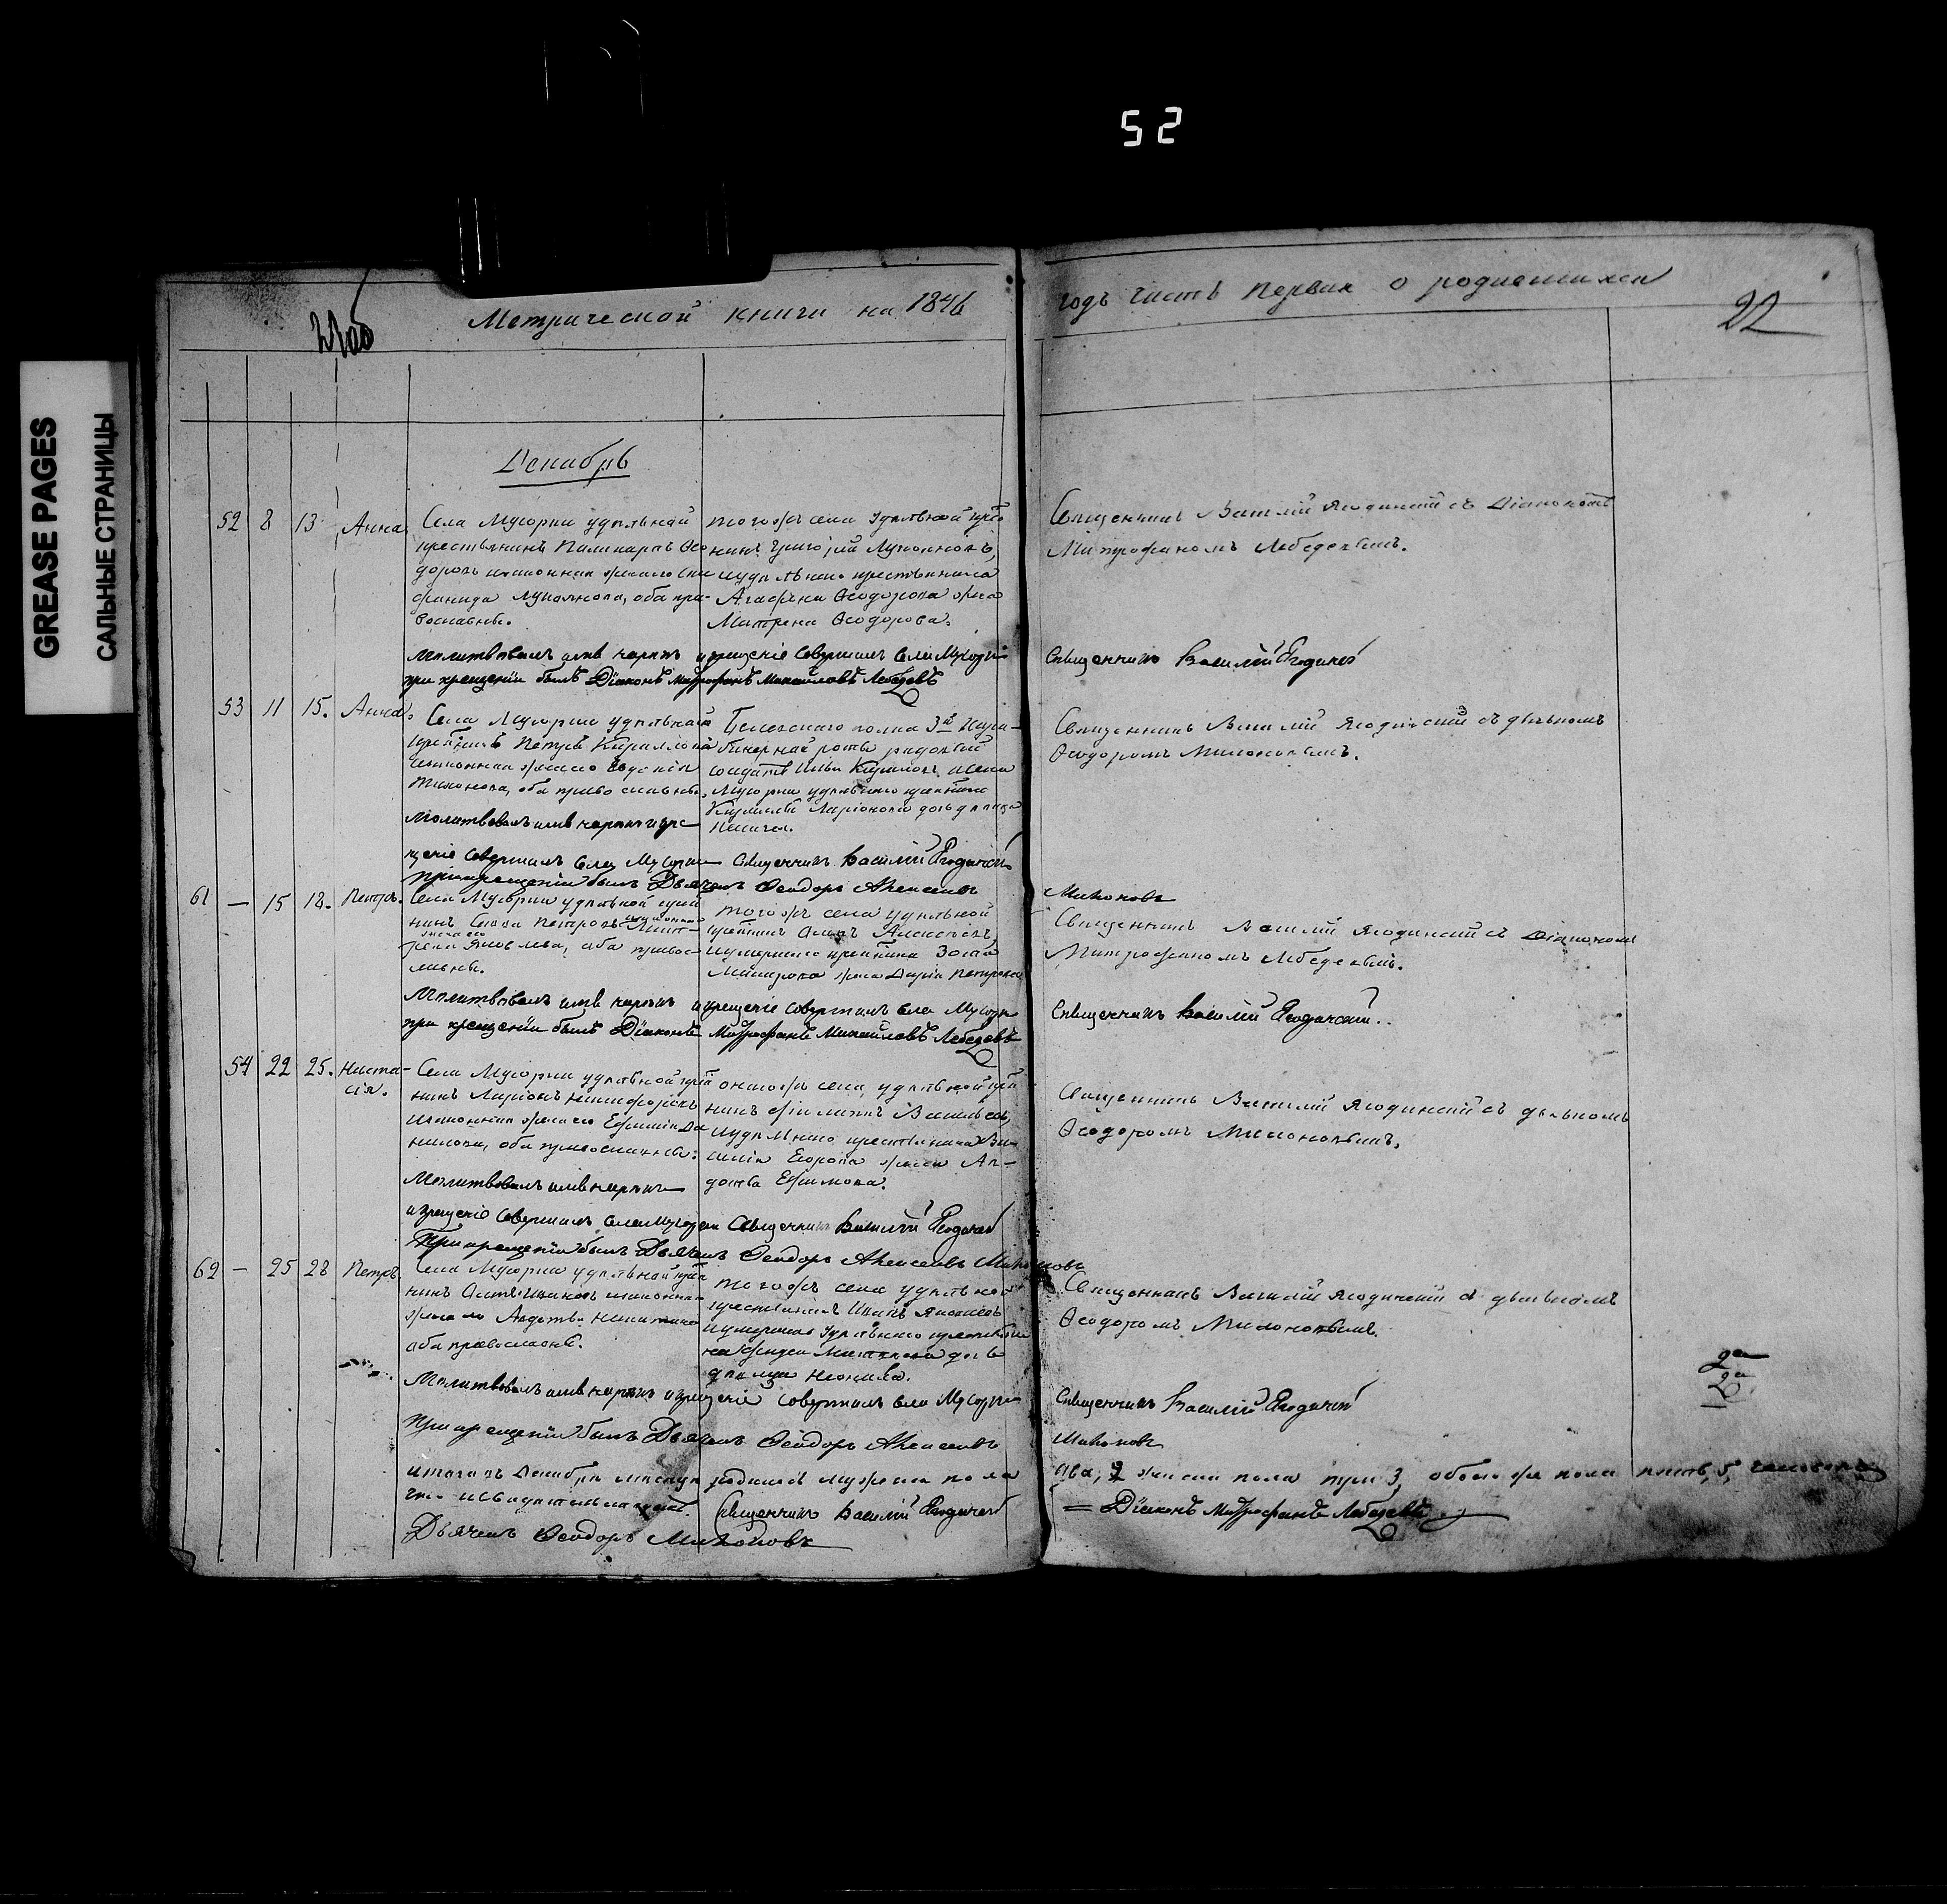 52
GREASE PAGES
САЛЬНЫЕ СТРАНИЦЫ
Метрической книги на 1846
годъ часть первая о родившихся
22
Декабрь
52 8 13 Анна
Села Мусорки удѣльной
крестьянинъ Поликарпъ Ѳео
доровъ и законная жена его
Лукьянова, оба пра-
вославны.
того жъ села удѣльной
нинъ Григорій Лукояновъ,
и удѣльнаго крестьянина
Ѳеодорова жена
Матрена Ѳеодорова.
Священникъ Василій Ягодинскій съ Діакономъ
Митрофаномъ Лебедевымъ.
Молитвовалъ имя нарекъ и крещеніе совершилъ села Мусорки
Священникъ Василій Ягодинскій
при крещеніи былъ Діаконъ Митрофанъ Михайловъ Лебедевъ
53 11 15. Анна.
Села Мусорки удѣльной
Петръ Кириловъ
законная жена его Евдокія
Тихонова, оба православны.
полка 3й Кара-
бинерной роты рядовой
солдатъ Илья Кириловъ и села
Мусорки удѣльнаго
Ларіонова дочь дѣвица
Священникъ Василій Ягодинскій съ дьячкомъ
Ѳеодоромъ Милоновымъ.
Молитвовалъ имя нарекъ и кре-
щеніе совершилъ села Мусорки Священникъ Василій Ягодинскій
При крещеніи былъ Дьячекъ Ѳеодоръ Алексеевъ
Милоновъ
61 — 15 18. Петръ.
Села Мусорки удѣльной
нинъ Савва Петровъ законная
жена его
Яковлева, оба правос-
лавны.
того жъ села удѣльной
Алексѣевъ,
и умершаго
жена Дарія Петрова
Священникъ Василій Ягодинскій съ Діакономъ
Митрофаномъ Лебедевымъ.
Молитвовалъ имя нарекъ и крещеніе совершилъ села Мусорки
Священникъ Василій Ягодинскій.
при крещеніи былъ Діаконъ Митрофанъ Михайловъ Лебедевъ
54 22 25. Наста-
сія.
Села Мусорки удѣльной
нинъ Ларіонъ Никифоровъ
законная жена его Ефимія Да
нилова, оба православны.
онагожъ села, удѣльной
нинъ Филиппъ Васильевъ,
и удѣльнаго крестьянина Ва-
силія Егорова жена Ав-
дотья Ефимова.
Священникъ Василій Ягодинскій съ дьячкомъ
Ѳеодоромъ Милоновымъ.
Молитвовалъ имя нарекъ
и крещеніе совершилъ села Мусорки Священникъ Василій Ягодинскій
При крещеніи былъ Дьячекъ Ѳеодоръ Алексеевъ Милоновъ
62 — 25 28 Петръ.
Села Мусорки удѣльной
нинъ Ивановъ законная
жена его Авдотья Никитина
оба православны.
того жъ села удѣльной
крестьянинъ Иванъ Яковлевъ
и умершаго удѣльнаго
дочь
дѣвица
Священникъ Василій Ягодинскій съ дьячкомъ
Ѳеодоромъ Милоновымъ.
Молитвовалъ имя нарекъ и крещеніе совершилъ села Мусорки
Священникъ Василій Ягодинскій
При крещеніи былъ Дьячекъ Ѳеодоръ Алексеевъ
Милоновъ
Итого въ Декабрѣ месяцѣ родилось мужеска пола
два, 2 женска пола три 3, обоего же пола пять, 5, человекъ
Священникъ Василій Ягодинскій
Діаконъ Митрофанъ Лебедевъ
Дьячекъ Ѳеодоръ Милоновъ